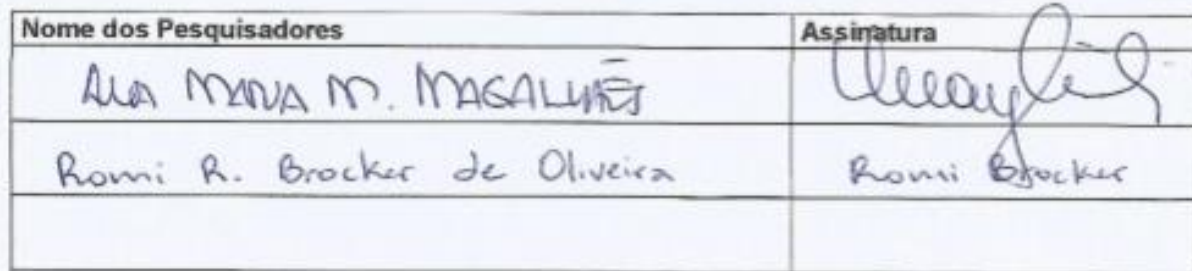 Nome dos Pesquisadores Assinatura
ANA MARIA M. MAGALHÃES
Romi R. Brocker de Oliveira Romi Brocker